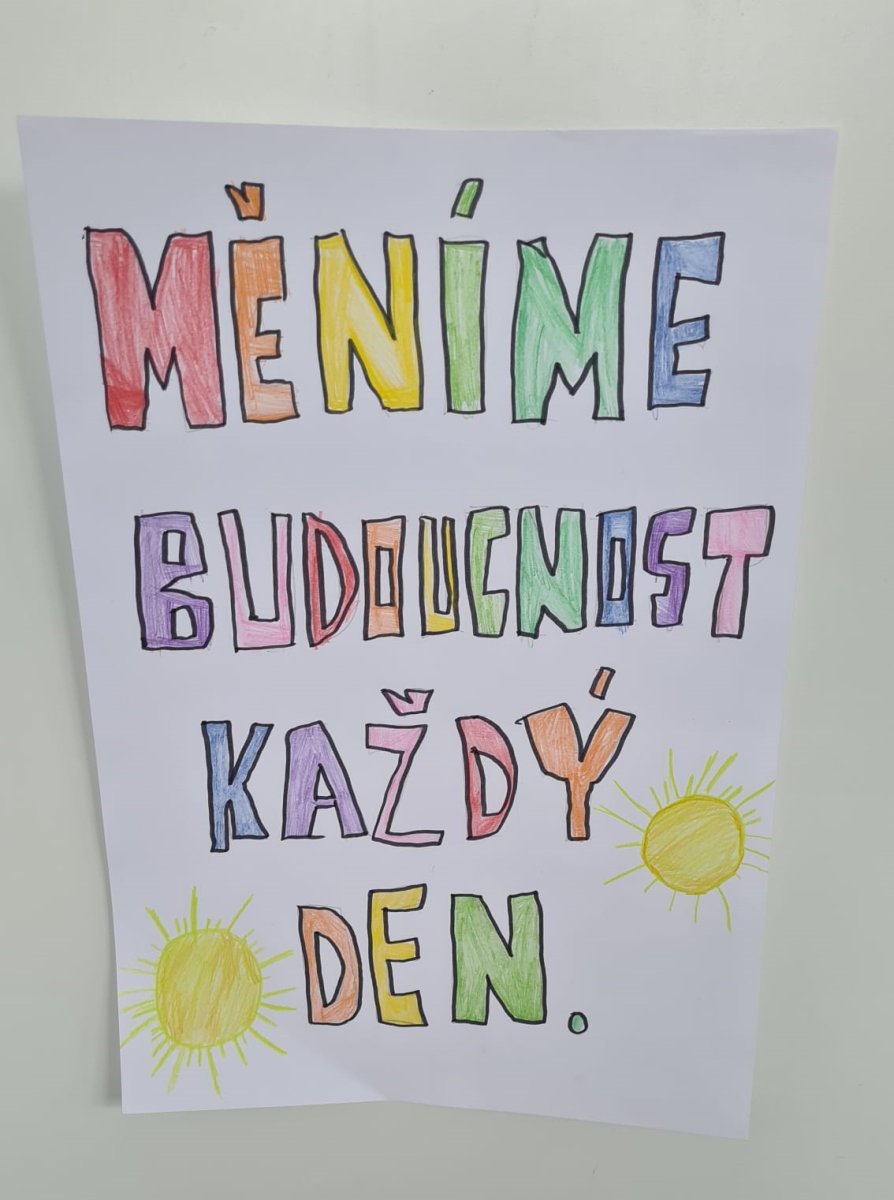 MĚNÍME
BUDOUCNOST
KAŽDÝ
DEN.